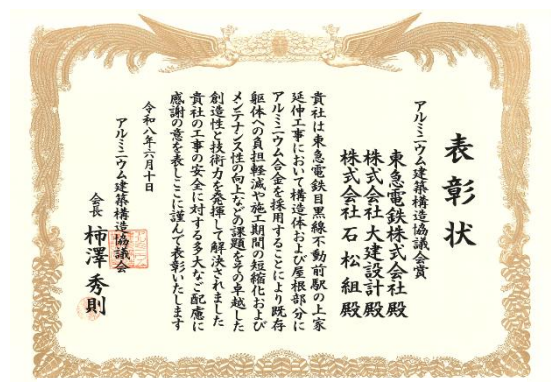 表彰状
アルミニウム建築構造協議会賞
東急電鉄株式会社殿
株式会社大建設計殿
株式会社石松組殿
貴社は東急電鉄目黒線不動前駅の上家
延伸工事において構造体および屋根部分に
アルミニウム合金を採用することにより既存
躯体への負担軽減や施工期間の短縮化および
メンテナンス性の向上などの課題をその卓越した
創造性と技術力を発揮して解決されました
貴社の工事の安全に対する多大なご配慮に
感謝の意を表しここに謹んで表彰いたします
令和八年六月十日
アルミニウム建築構造協議会
会長 柿澤秀則